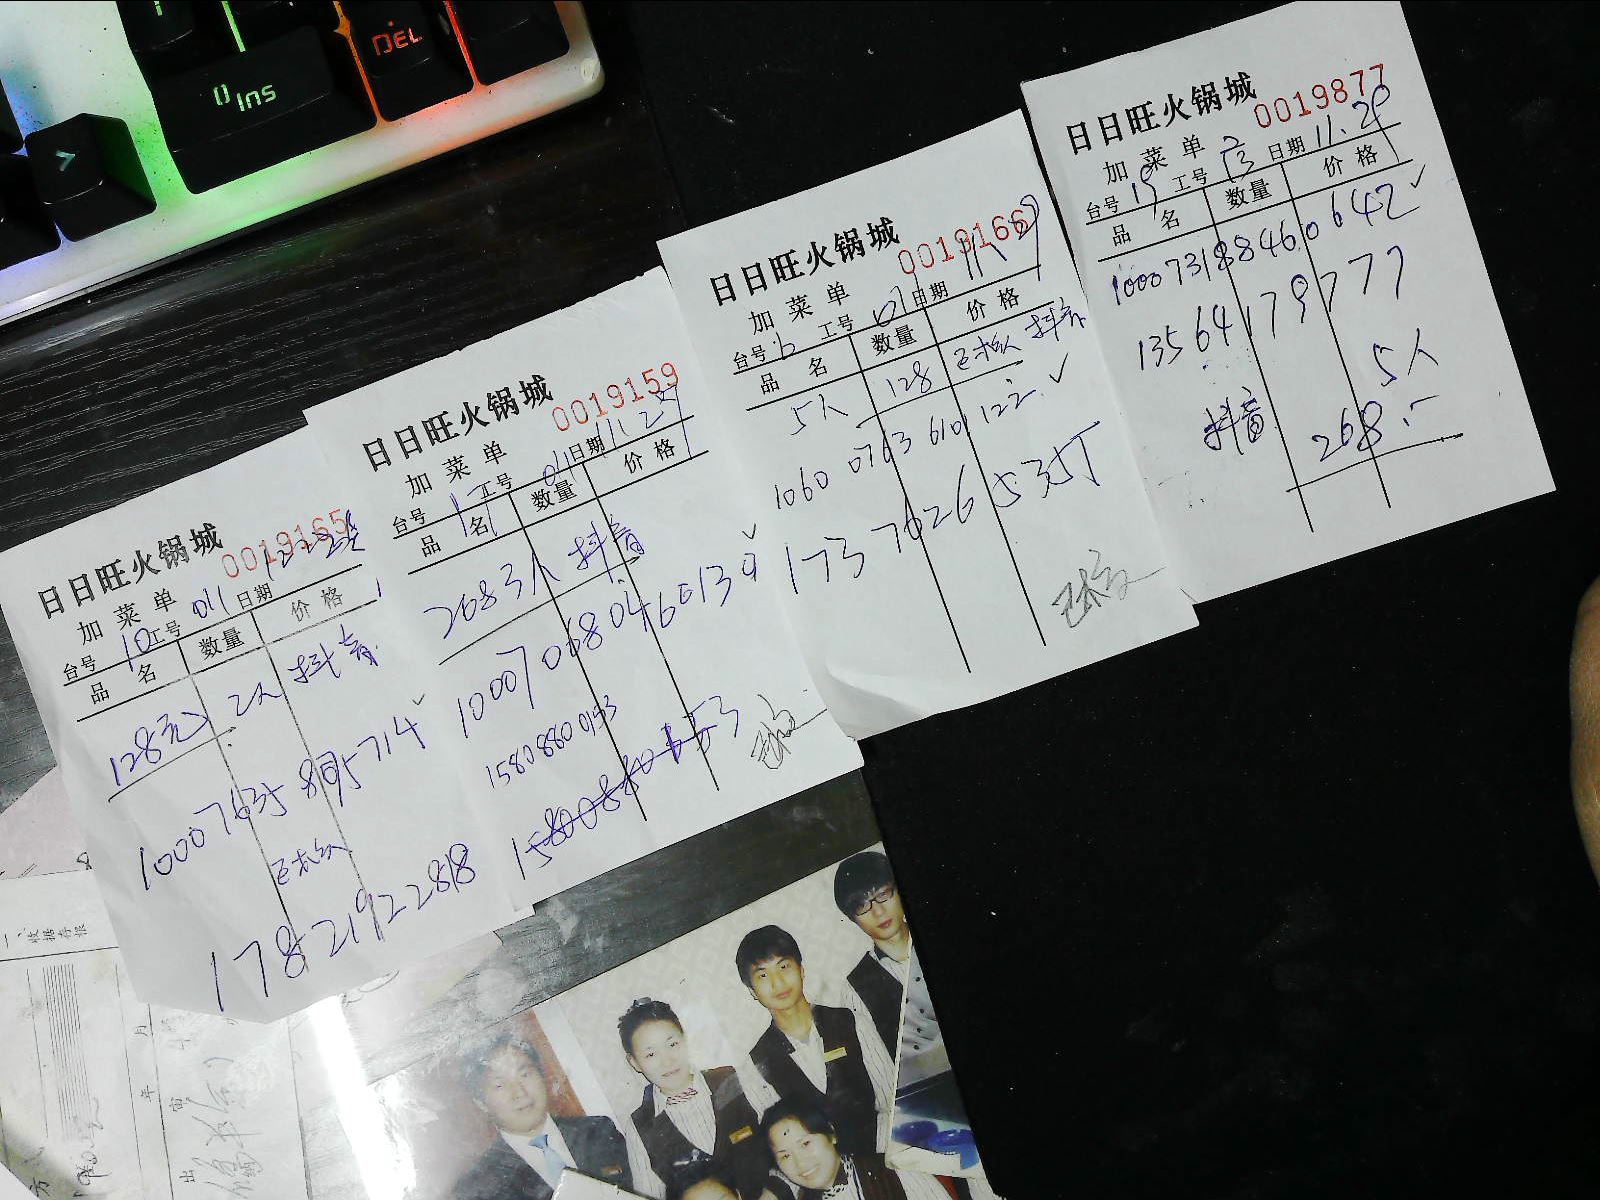 DEL
0 Ins
>
日日旺火锅城
0019165
加菜单
台号 10 工号 011 日期
品名 数量 价格
128元 2人 抖音
已核
17821922818
日日旺火锅城
0019159
加菜单
台号 17 工号 011 日期 11.29
品名 数量 价格
268 3人 抖音
1000706804660139
15808800153
日日旺火锅城
0019166
加菜单
台号 6 工号 01 日期 11.29
品名 数量 价格
5人 128 已核 抖音
1060 0763 610 122
日日旺火锅城
0019877
加菜单
台号 19 工号 日期 11.29
品名 数量 价格
100073188460642
13564179777
5人
抖音 268.-
一、收据存根
年 月
出
方式